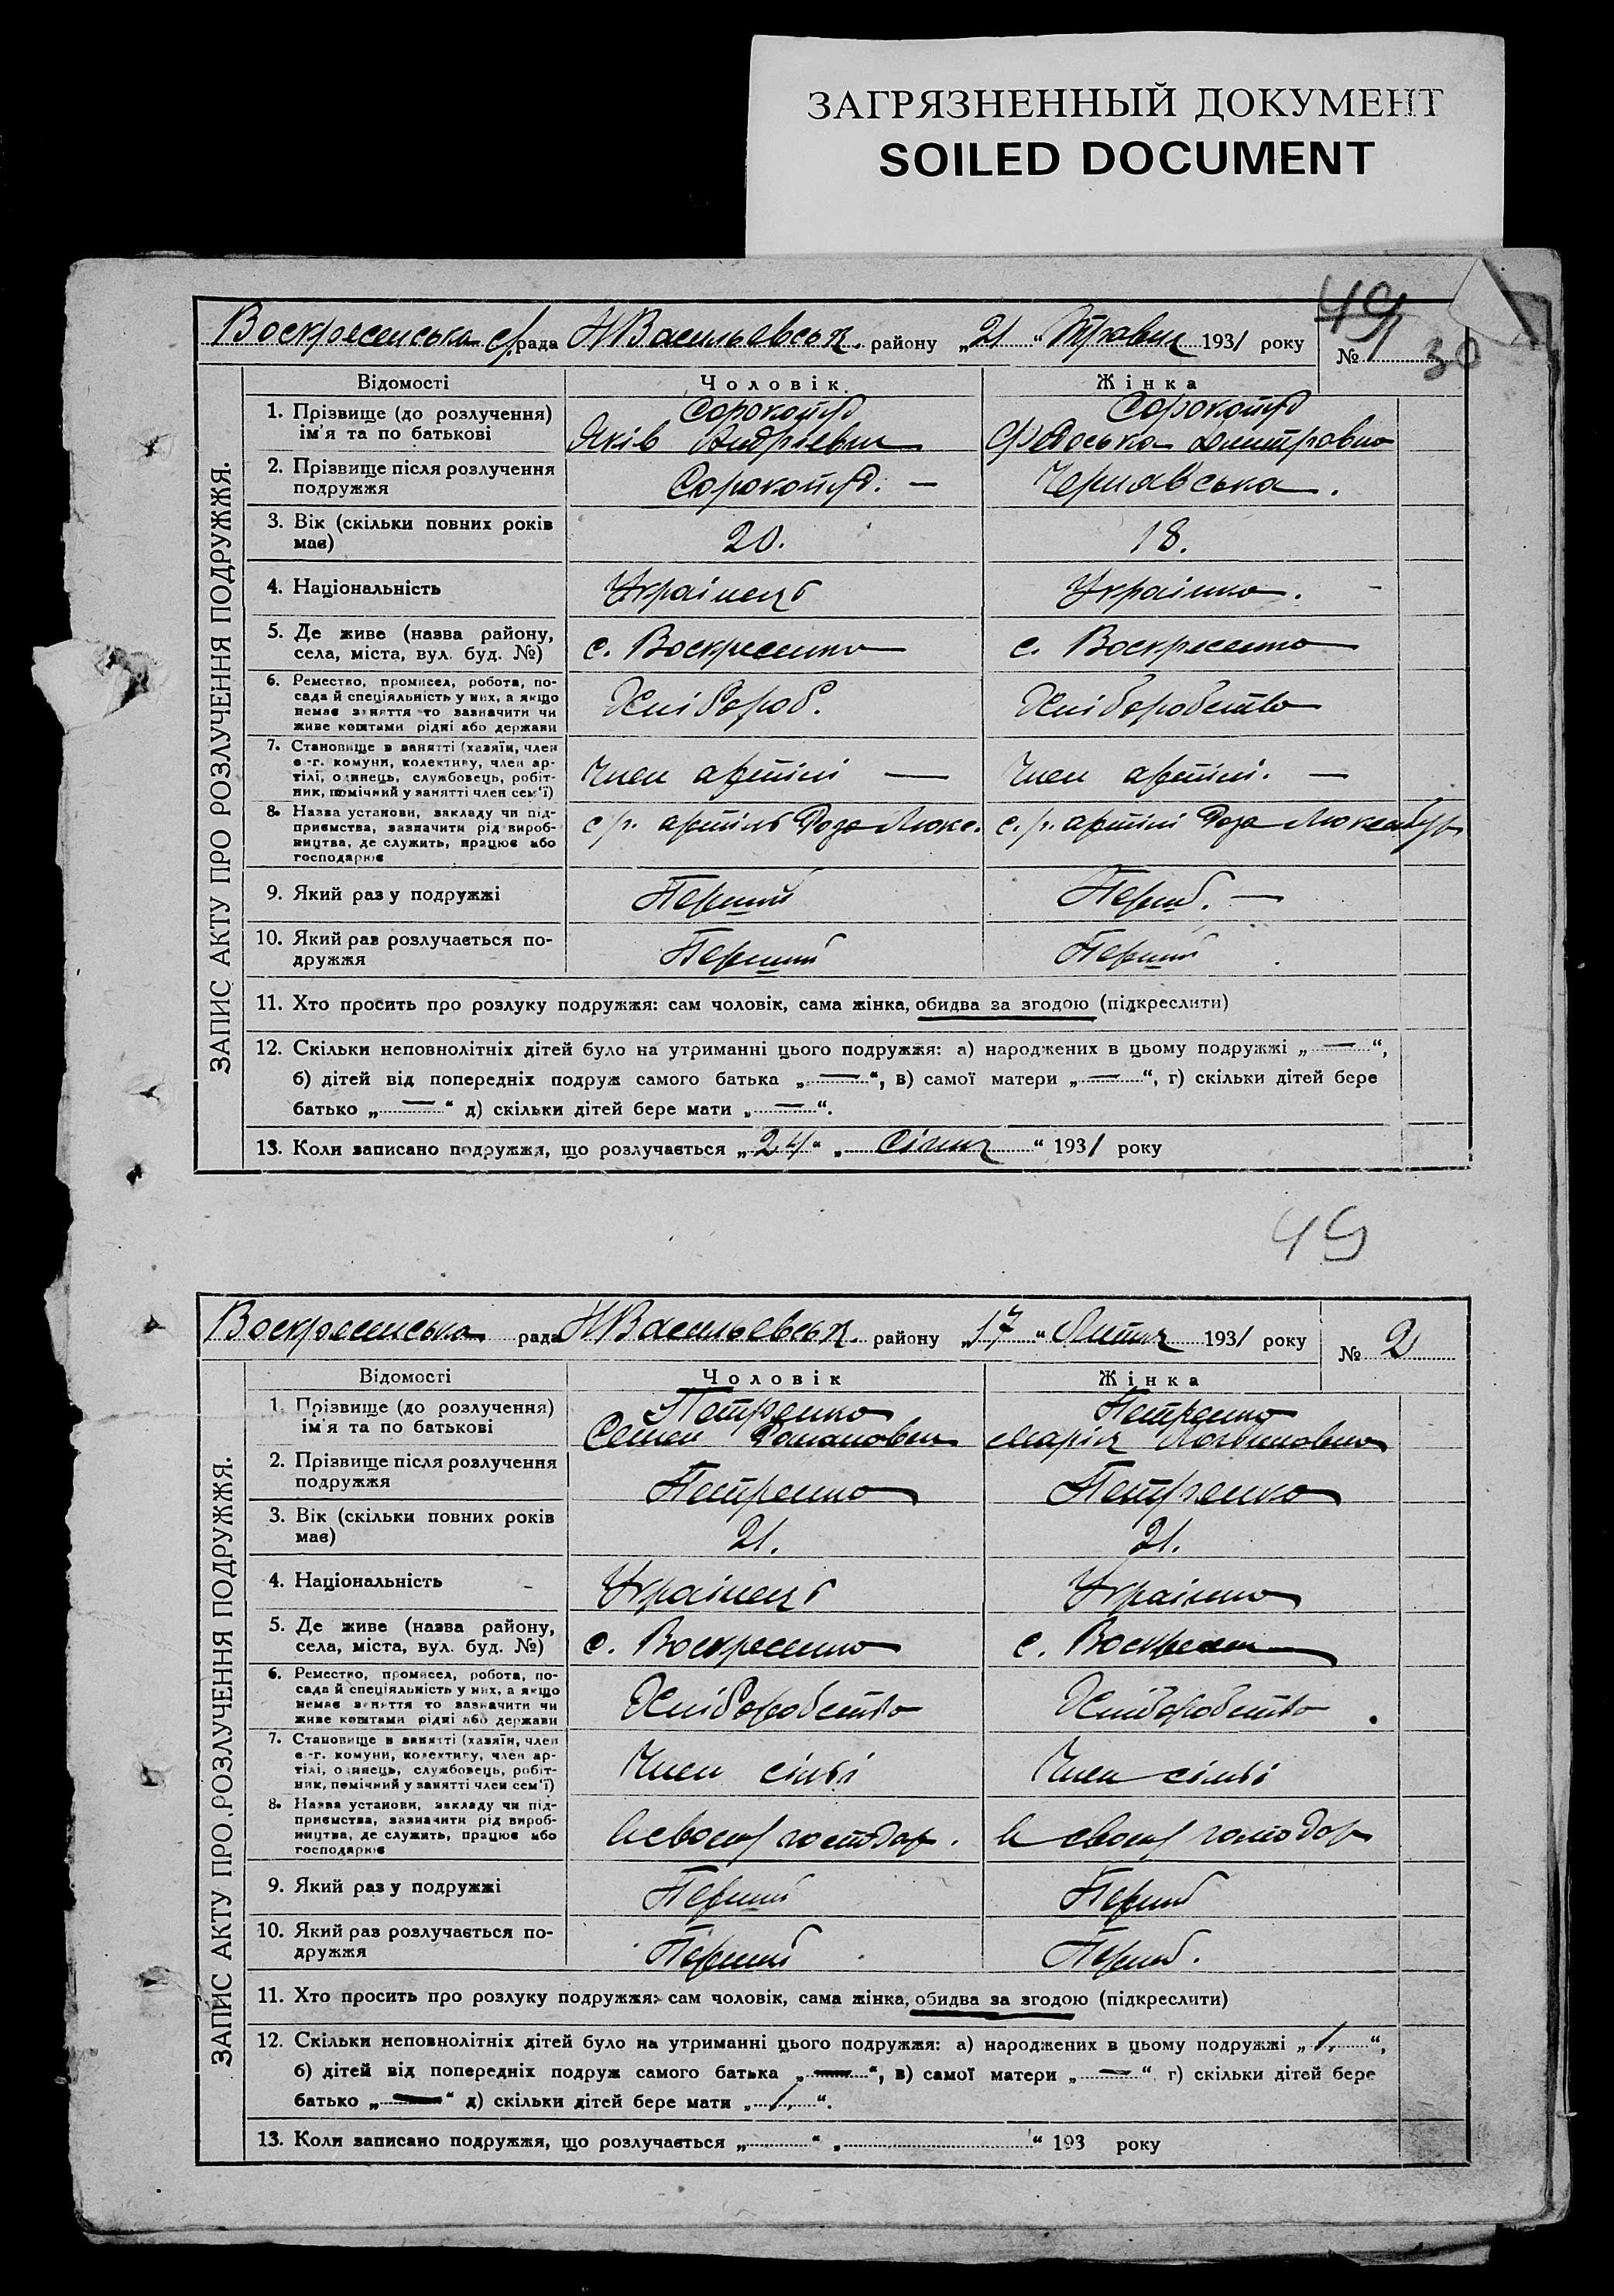 ЗАГРЯЗНЕННЫЙ ДОКУМЕНТ
SOILED DOCUMENT
49
Воскресенська с/рада НВасильевськ. району „21 “ Травня 1931 року
№ 1
30
ЗАПИС АКТУ ПРО РОЗЛУЧЕННЯ ПОДРУЖЖЯ.
Відомості Чоловік. Жінка
1. Прізвище (до розлучення) Сорокотуд Сорокотуд
ім'я та по батькові Яків Андрієвич Федоська Дмитровна
2. Прізвище після розлучення
подружжя Сорокотуд. — Чернявська.
3. Вік (скільки повних років
має) 20. 18.
4. Національність Українець Українка.
5. Де живе (назва району,
села, міста, вул. буд. №) с. Воскресенка с. Воскресенка
6. Ремество, промисел, робота, по-
сада й спеціяльність у них, а якщо
немає заняття то зазначити чи
живе коштами рідні або держави Хлібороб. Хліборобство
7. Становище в занятті (хазяїн, член
с.-г. комуни, колективу, член ар-
тілі, одинець, службовець, робіт-
ник, помічний у занятті член сем'ї) Член артілі — Член артілі. —
8. Назва установи, закладу чи під-
приємства, зазначити рід вироб-
ництва, де служить, працює або
господарює с/г. артіль Роза Люкс. с./г. артілі Роза Люксембур
9. Який раз у подружжі Перший Перший. —
10. Який раз розлучається по-
дружжя Перший Перший
11. Хто просить про розлуку подружжя: сам чоловік, сама жінка, обидва за згодою (підкреслити)
12. Скільки неповнолітніх дітей було на утриманні цього подружжя: а) народжених в цьому подружжі „ — “,
б) дітей від попередніх подруж самого батька „ — “, в) самої матери „ — “, г) скільки дітей бере
батько „ — “ д) скільки дітей бере мати „ — “.
13. Коли записано подружжя, що розлучається „ 24 “ „ Січня “ 1931 року
49
Воскресенська рада НВасильевськ. району „17 “ Липня 1931 року
№ 2
ЗАПИС АКТУ ПРО РОЗЛУЧЕННЯ ПОДРУЖЖЯ.
Відомості Чоловік Жінка
1. Прізвище (до розлучення) Петренко Петренко
ім'я та по батькові Семен Романович Марія Логвиновна
2. Прізвище після розлучення
подружжя Петренко Петренко
3. Вік (скільки повних років
має) 21. 21.
4. Національність Українець Українка
5. Де живе (назва району,
села, міста, вул. буд. №) с. Воскресенка с. Воскресен
6. Ремество, промисел, робота, по-
сада й спеціяльність у них, а якщо
немає заняття то зазначити чи
живе коштами рідні або держави Хліборобство Хліборобство
7. Становище в занятті (хазяїн, член
с.-г. комуни, колективу, член ар-
тілі, одинець, службовець, робіт-
ник, помічний у занятті член сем'ї) Член сімьї Член сімьї
8. Назва установи, закладу чи під-
приємства, зазначити рід вироб-
ництва, де служить, працює або
господарює В своєму господар. В своєму господар
9. Який раз у подружжі Перший Перший
10. Який раз розлучається по-
дружжя Перший Перший.
11. Хто просить про розлуку подружжя: сам чоловік, сама жінка, обидва за згодою (підкреслити)
12. Скільки неповнолітніх дітей було на утриманні цього подружжя: а) народжених в цьому подружжі „ 1. “,
б) дітей від попередніх подруж самого батька „ — “, в) самої матери „ — “ г) скільки дітей бере
батько „ — “ д) скільки дітей бере мати „ 1. “.
13. Коли записано подружжя, що розлучається „ “ „ “ 193 року